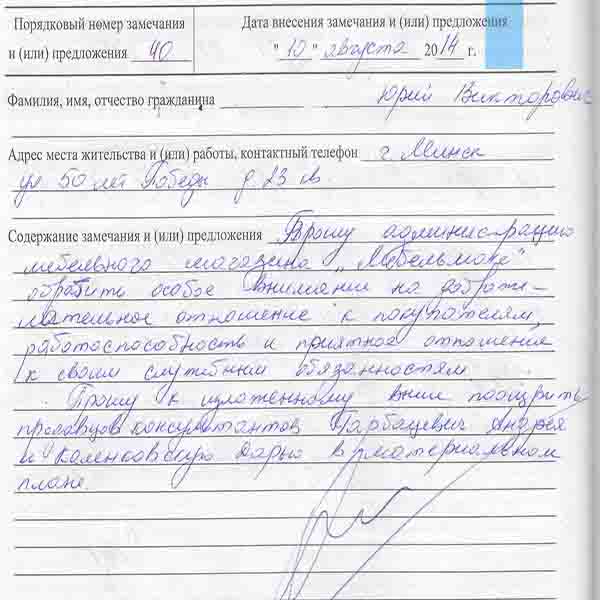 Порядковый номер замечания
и (или) предложения 40
Дата внесения замечания и (или) предложения
"10" августа 2014 г.
Фамилия, имя, отчество гражданина Юрий Викторович
Адрес места жительства и (или) работы, контактный телефон г. Минск
ул 50 лет Победы д. 23 кв.
Содержание замечания и (или) предложения Прошу администрацию
мебельного магазина "Мебельмакс"
обратить особое внимание на доброже-
лательное отношение к покупателям,
работоспособность и приятное отношение
к своим служебным обязанностям.
Прошу к изложенному выше поощрить
продавцов консультантов Гарбацевич Андрея
и Каленковскую Дарью в материальном
плане.